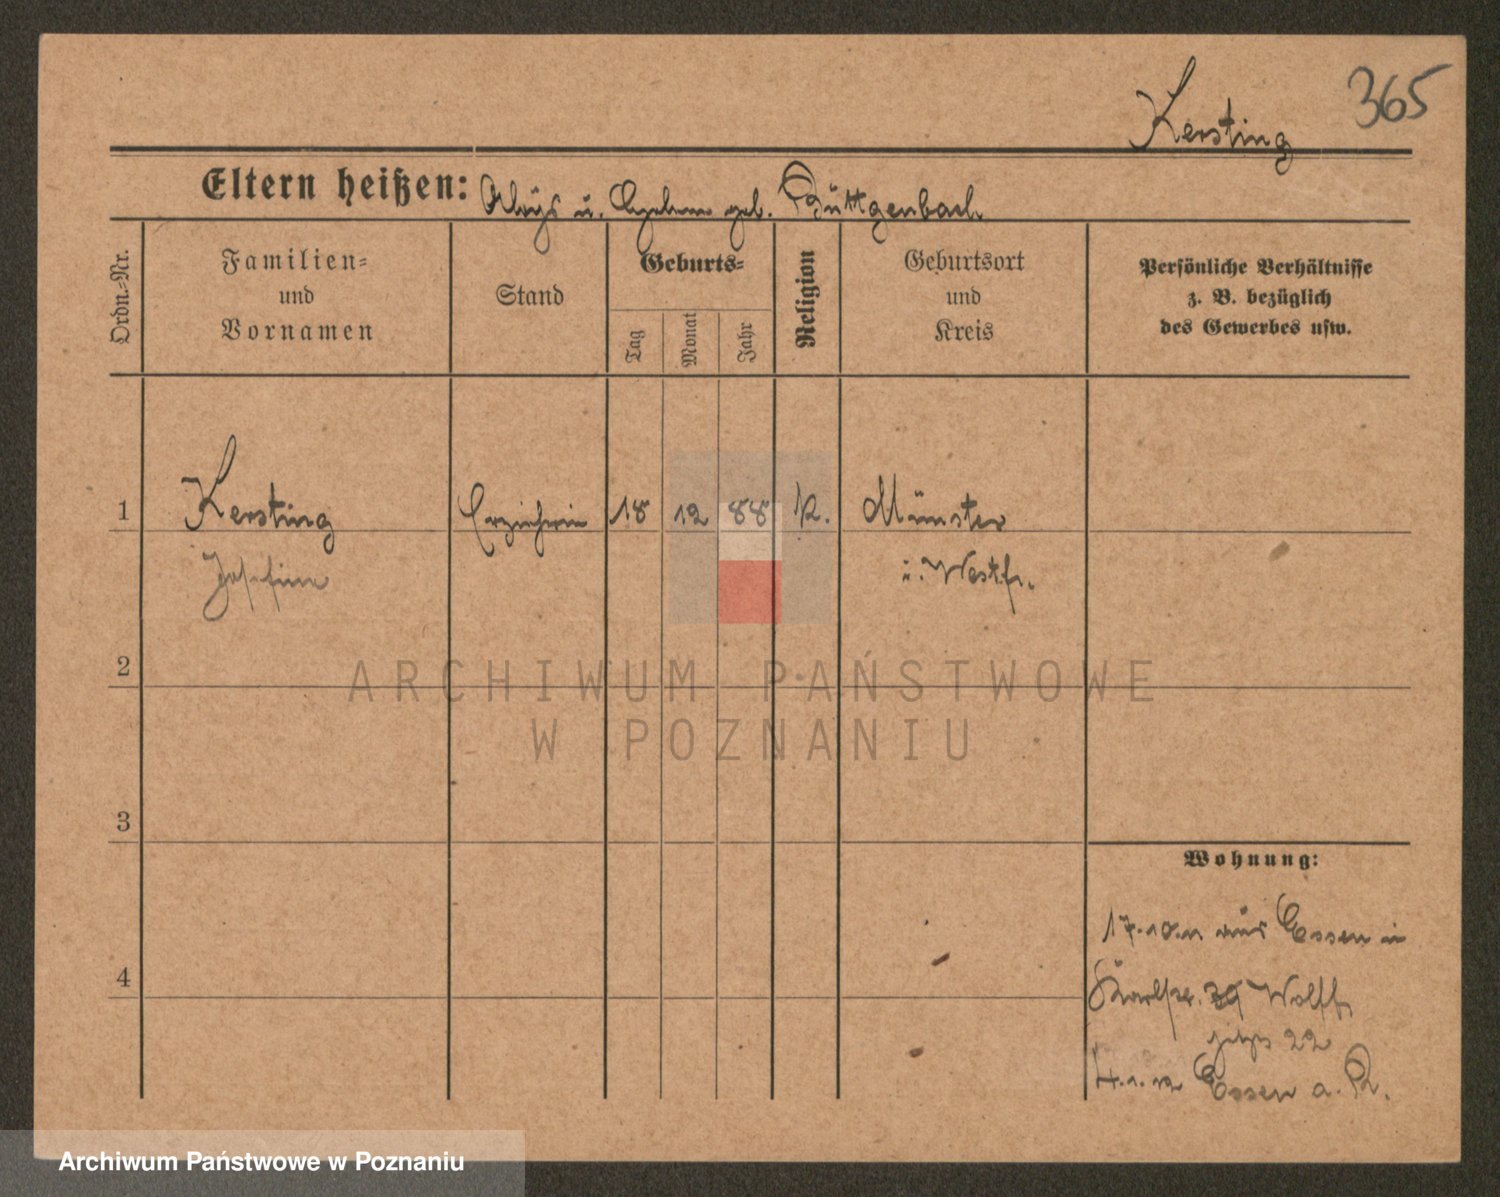 365
Kersting
Eltern heißen: Aloys u. geb. Büttgenbach
Ordn.-Nr.
Familien-
und
Vornamen
Stand
Geburts-
Tag
Monat
Jahr
Religion
Geburtsort
und
Kreis
Persönliche Verhältnisse
z. B. bezüglich
des Gewerbes usw.
1
Kersting
Erzieherin
18
12
88
K.
Münster
Josefine
i. Westf.
2
ARCHIWUM PAŃSTWOWE
W POZNANIU
3
Wohnung:
17.10.11 aus Essen in
4
Karlstr. 29 Wolff
22
4.1.12 Essen a. R.
Archiwum Państwowe w Poznaniu